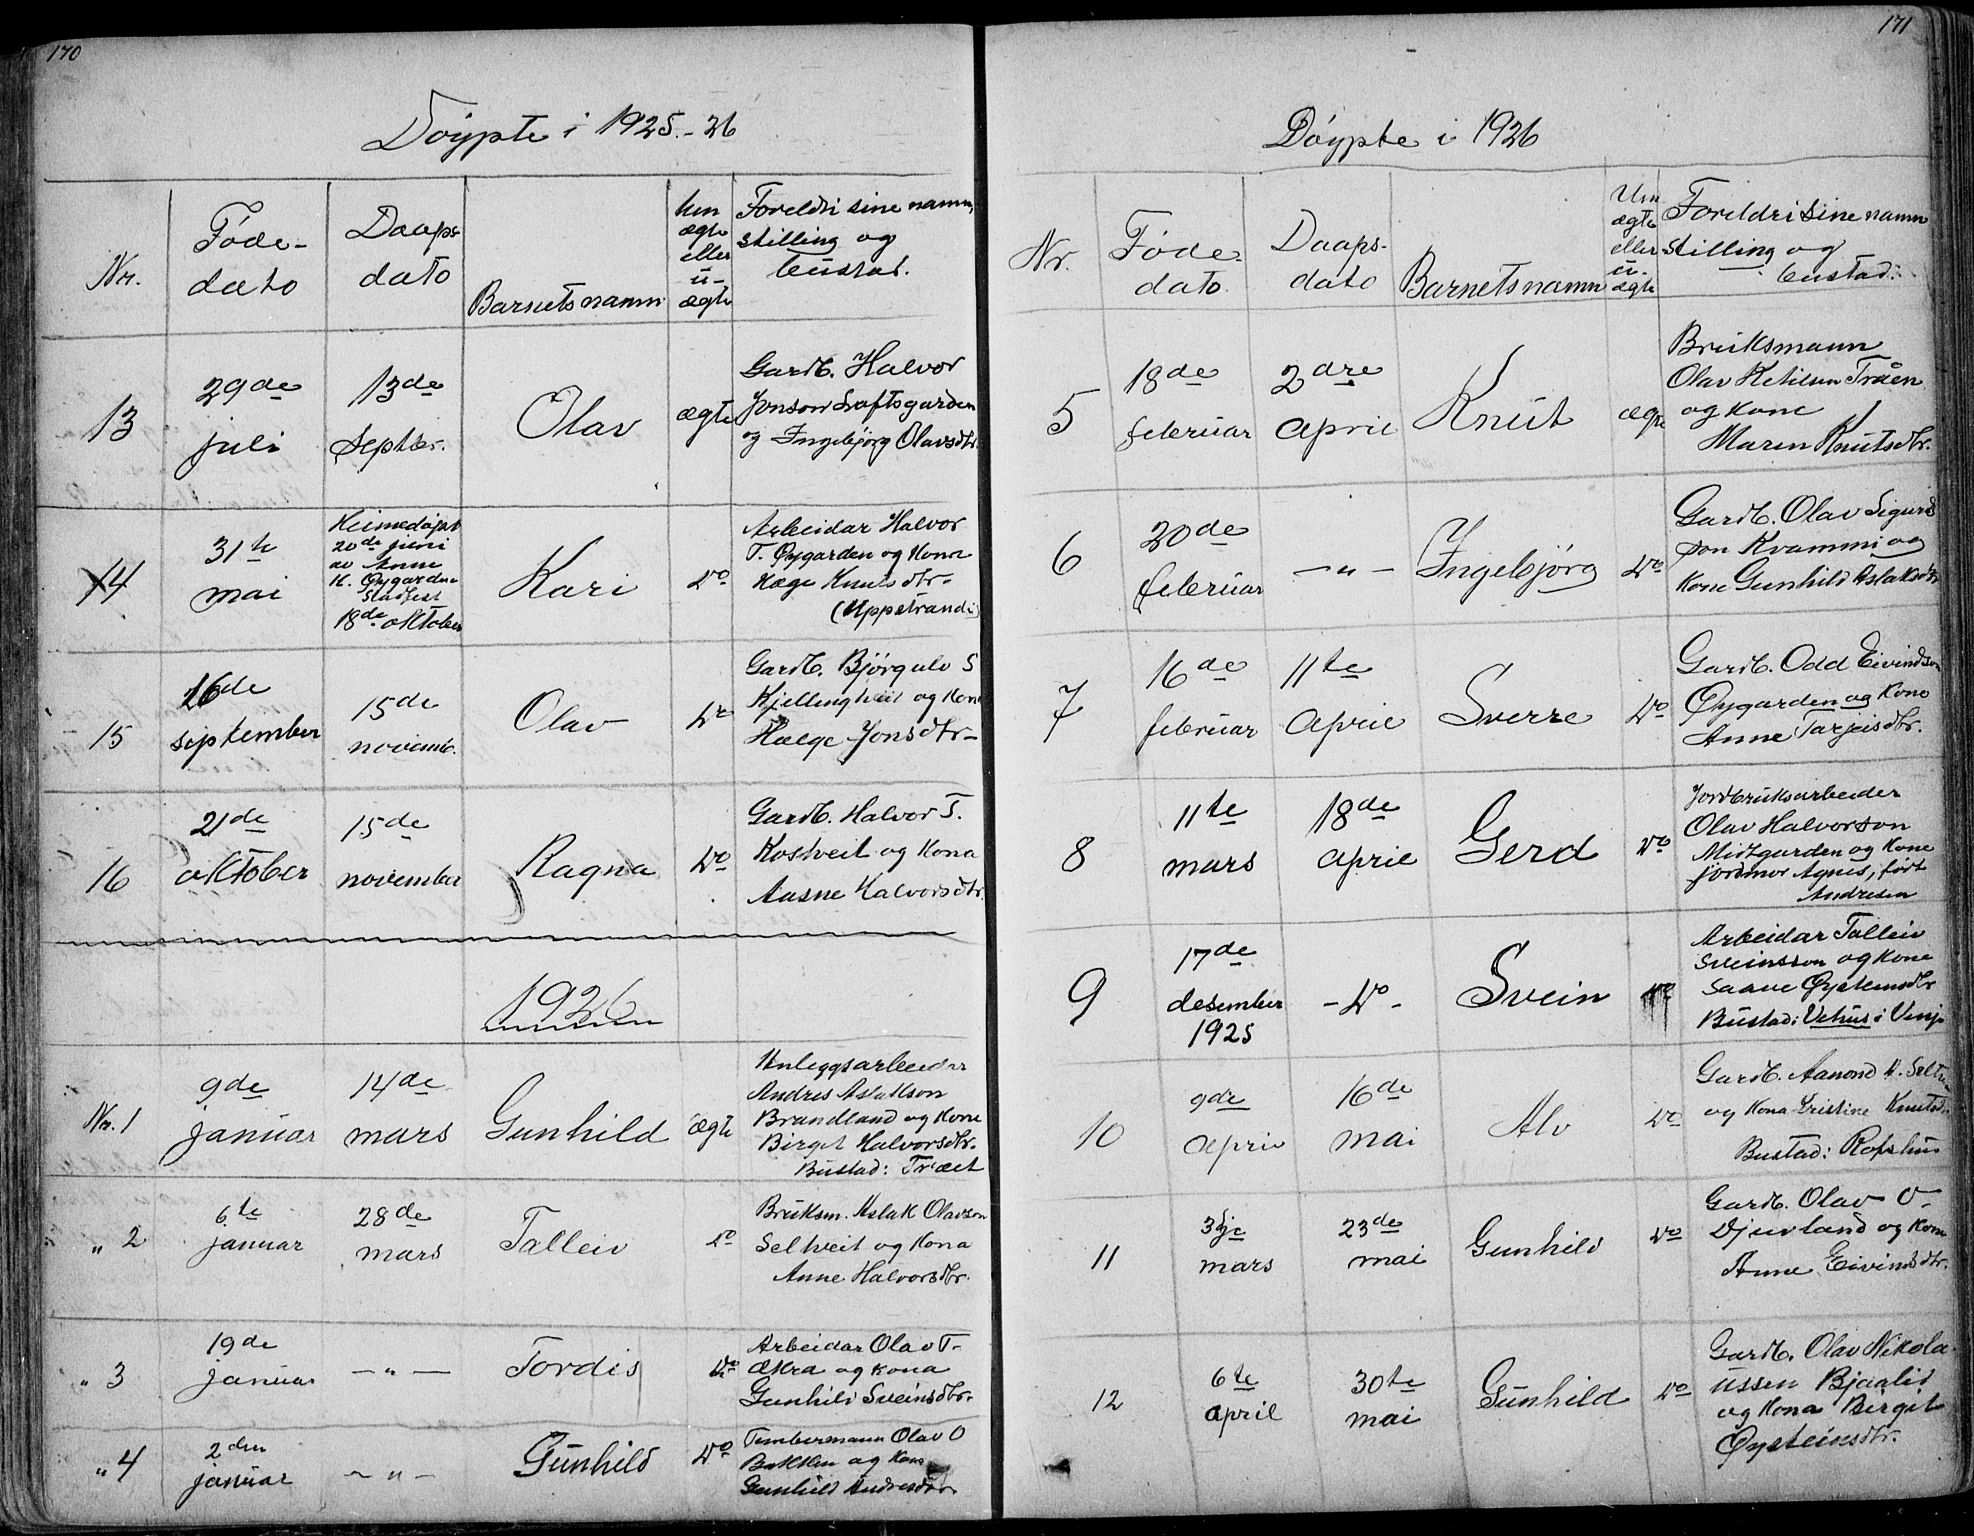 170
Døypte i 1925-26
Nr.
Føde-
dato
Daaps
dato
Barnets namn
Um
ægte
eller
u-
ægte
Foreldri sine namn,
stilling og
bustad.
13
29de
juli
13de
Septbr.
Olav
ægte
Gardb. Halvor
Jonson Loftsgarden
og Ingebjørg Olavsdtr.
14
31te
mai
Heimedøypt
20de juni
av Anne
H. Øygarden
Stadfest
18de oktober
Kari
Do
Arbeidar Halvor
T. Øygarden og Kona
Hæge Knutsdtr.
(Uppstrandi)
15
26de
september
15de
novemb.
Olav
Do
Gardb. Bjørgulv S
Kjellingtveit og Kona
Hælge Jonsdtr
16
21de
oktober
15de
november
Ragna
Do
Gardb. Halvor T.
Kostveit og Kona
Aasne Halvorsdtr.
1926
Nr. 1
9de
januar
14de
mars
Gunhild
Ægte
Anleggsarbeidar
Andres Aslakson
Brandland og Kone
Birgit Halvorsdtr.
Bustad: Træet
" 2
6te
januar
28de
mars
Talleiv
Do
Bruksm. Aslak Olavson
Seltveit og Kona
Anne Halvorsdtr.
" 3
19de
januar
— " —
Tordis
Do
Arbeidar Olav T.
Økra og Kona
Gunhild Sveinsdtr.
" 4
2dre
januar
— " —
Gunhild
Do
Tømbermann Olav O
Bakken og Kona
Gunhild Andresdtr.
171
Døypte i 1926
Nr.
Føde-
dato.
Daaps-
dato
Barnets namn
Um
ægte
eller
u-
ægte
Foreldri sine namn
stilling og
bustad.
5
18de
februar
2dre
April
Knut
ægte
Bruksmann
Olav Ketilson Tråen
og Kone
Maren Knutsdtr.
6
20de
februar
— " —
Ingebjørg
Do
Gardb. Olav Sigurd
son Kvammi og
Kone Gunhild Aslaksdtr
7
16de
februar
11te
April
Sverre
Do
Gardb. Odd Eivindson
Øygarden og Kone
Anne Tarjeisdtr.
8
11te
mars
18de
April
Gerd
Do
Jordbruksarbeider
Olav Halvorson
Midgarden og Kone
jordmor Agnes, født
Andresen
9
17de
desember
1925
- Do -
Svein
Do
Arbeidar Talleiv
Sveinsson og Kone
Saave Øysteinsdtr
Bustad: Vehus i Vinje
10
9de
april
16de
mai
Alv
Do
Gardb. Aanond K.
og Kona Kristine Knutsd.
Bustad: Rofshus
11
3dje
mars
23de
mai
Gunhild
Do
Gardb. Olav O-
Djuvland og Kone
Anne Eivindsdtr.
12
6te
april
30te
mai
Gunhild
Do
Gardb. Olav Nikola-
ussen Bjaalid
og Kona Birgit
Øysteinsdtr.